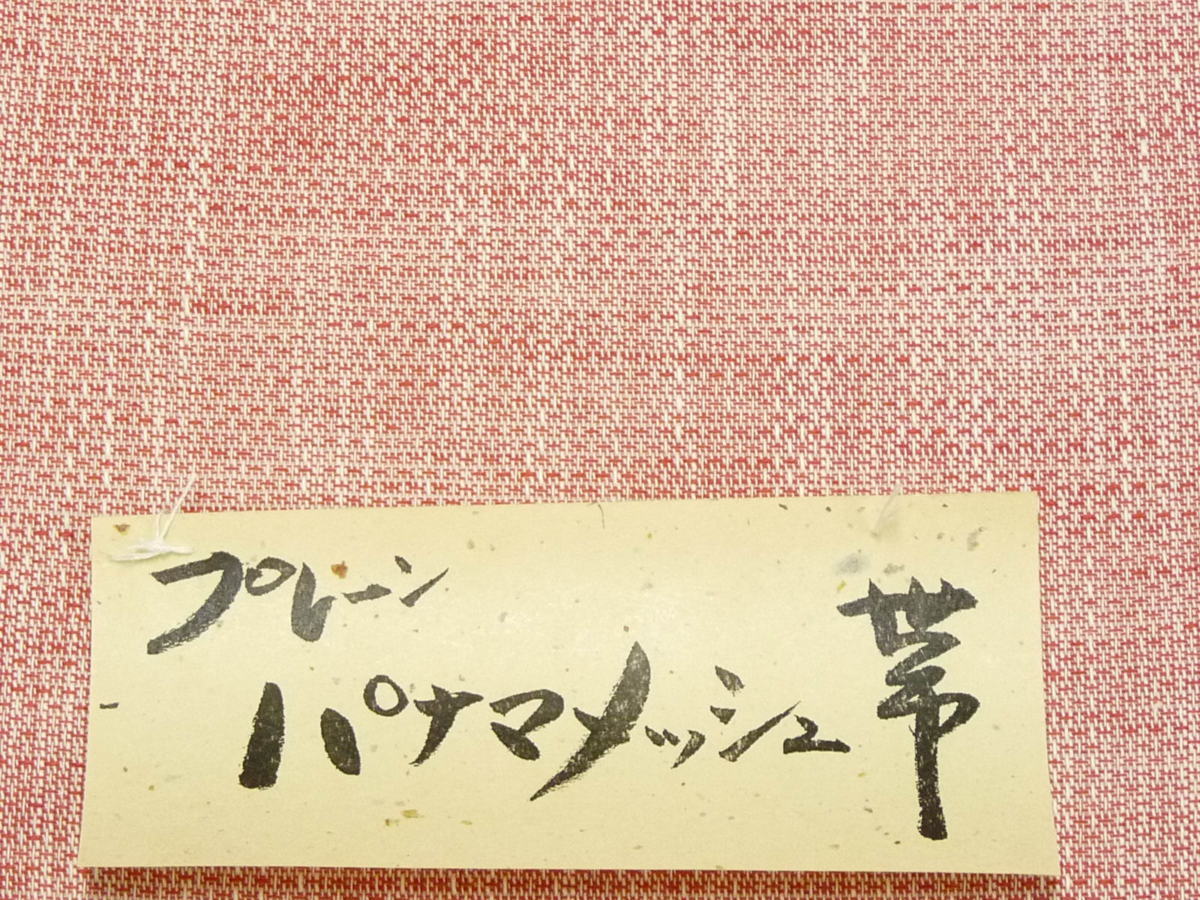 プレーン
パナマメッシュ帯